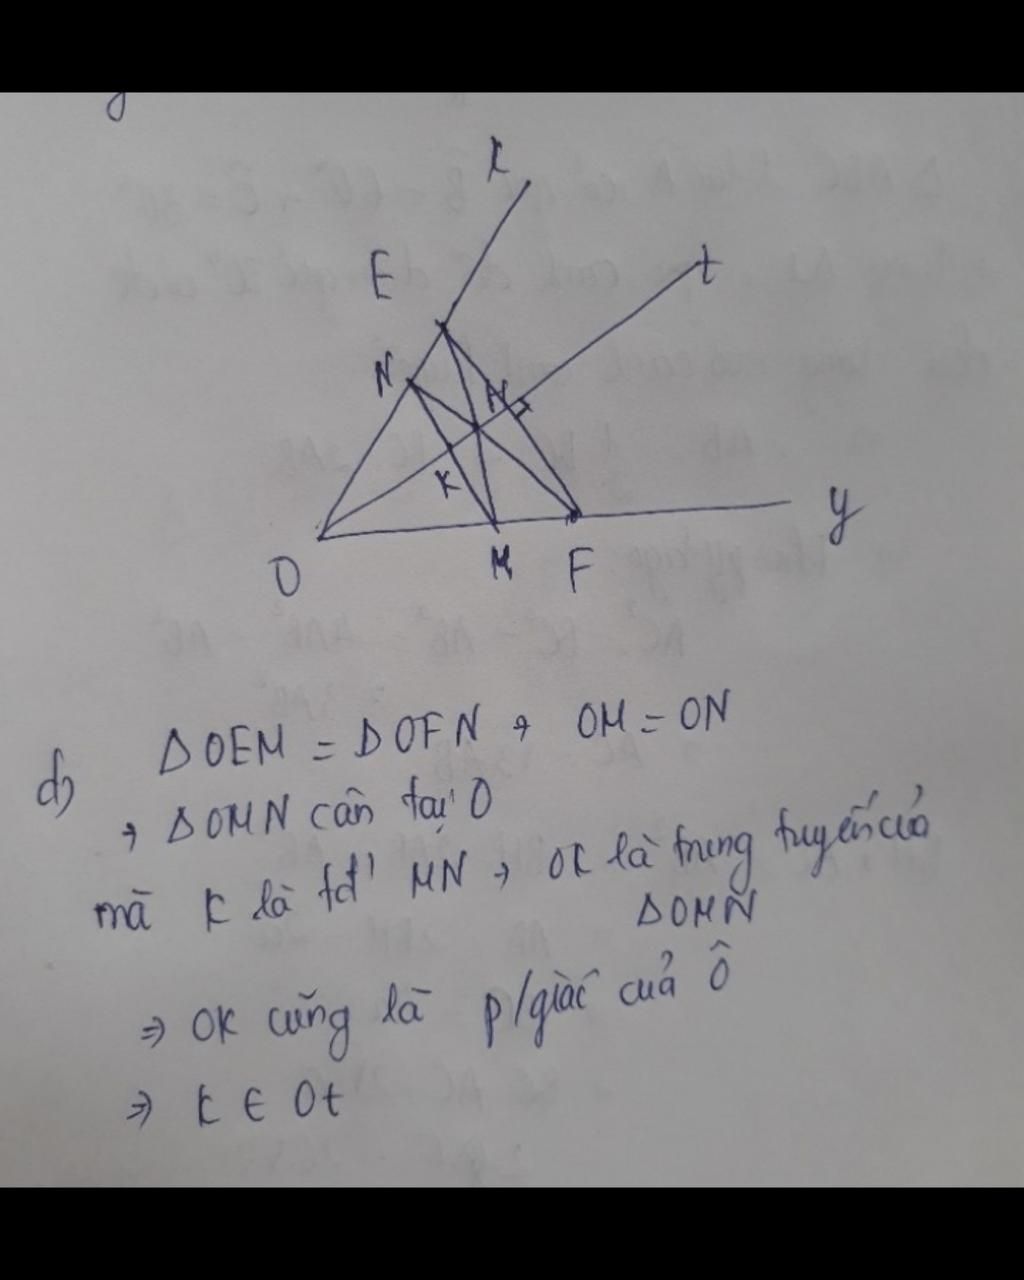 x
E
t
N
H
K
y
O
M
F
d)
ΔOEM = ΔOFN → OM = ON
→ ΔOMN cân tại O
mà K là tđ' MN → OK là trung tuyến của
ΔOMN
⇒ OK cũng là p/giác của Ô
⇒ K ∈ Ot